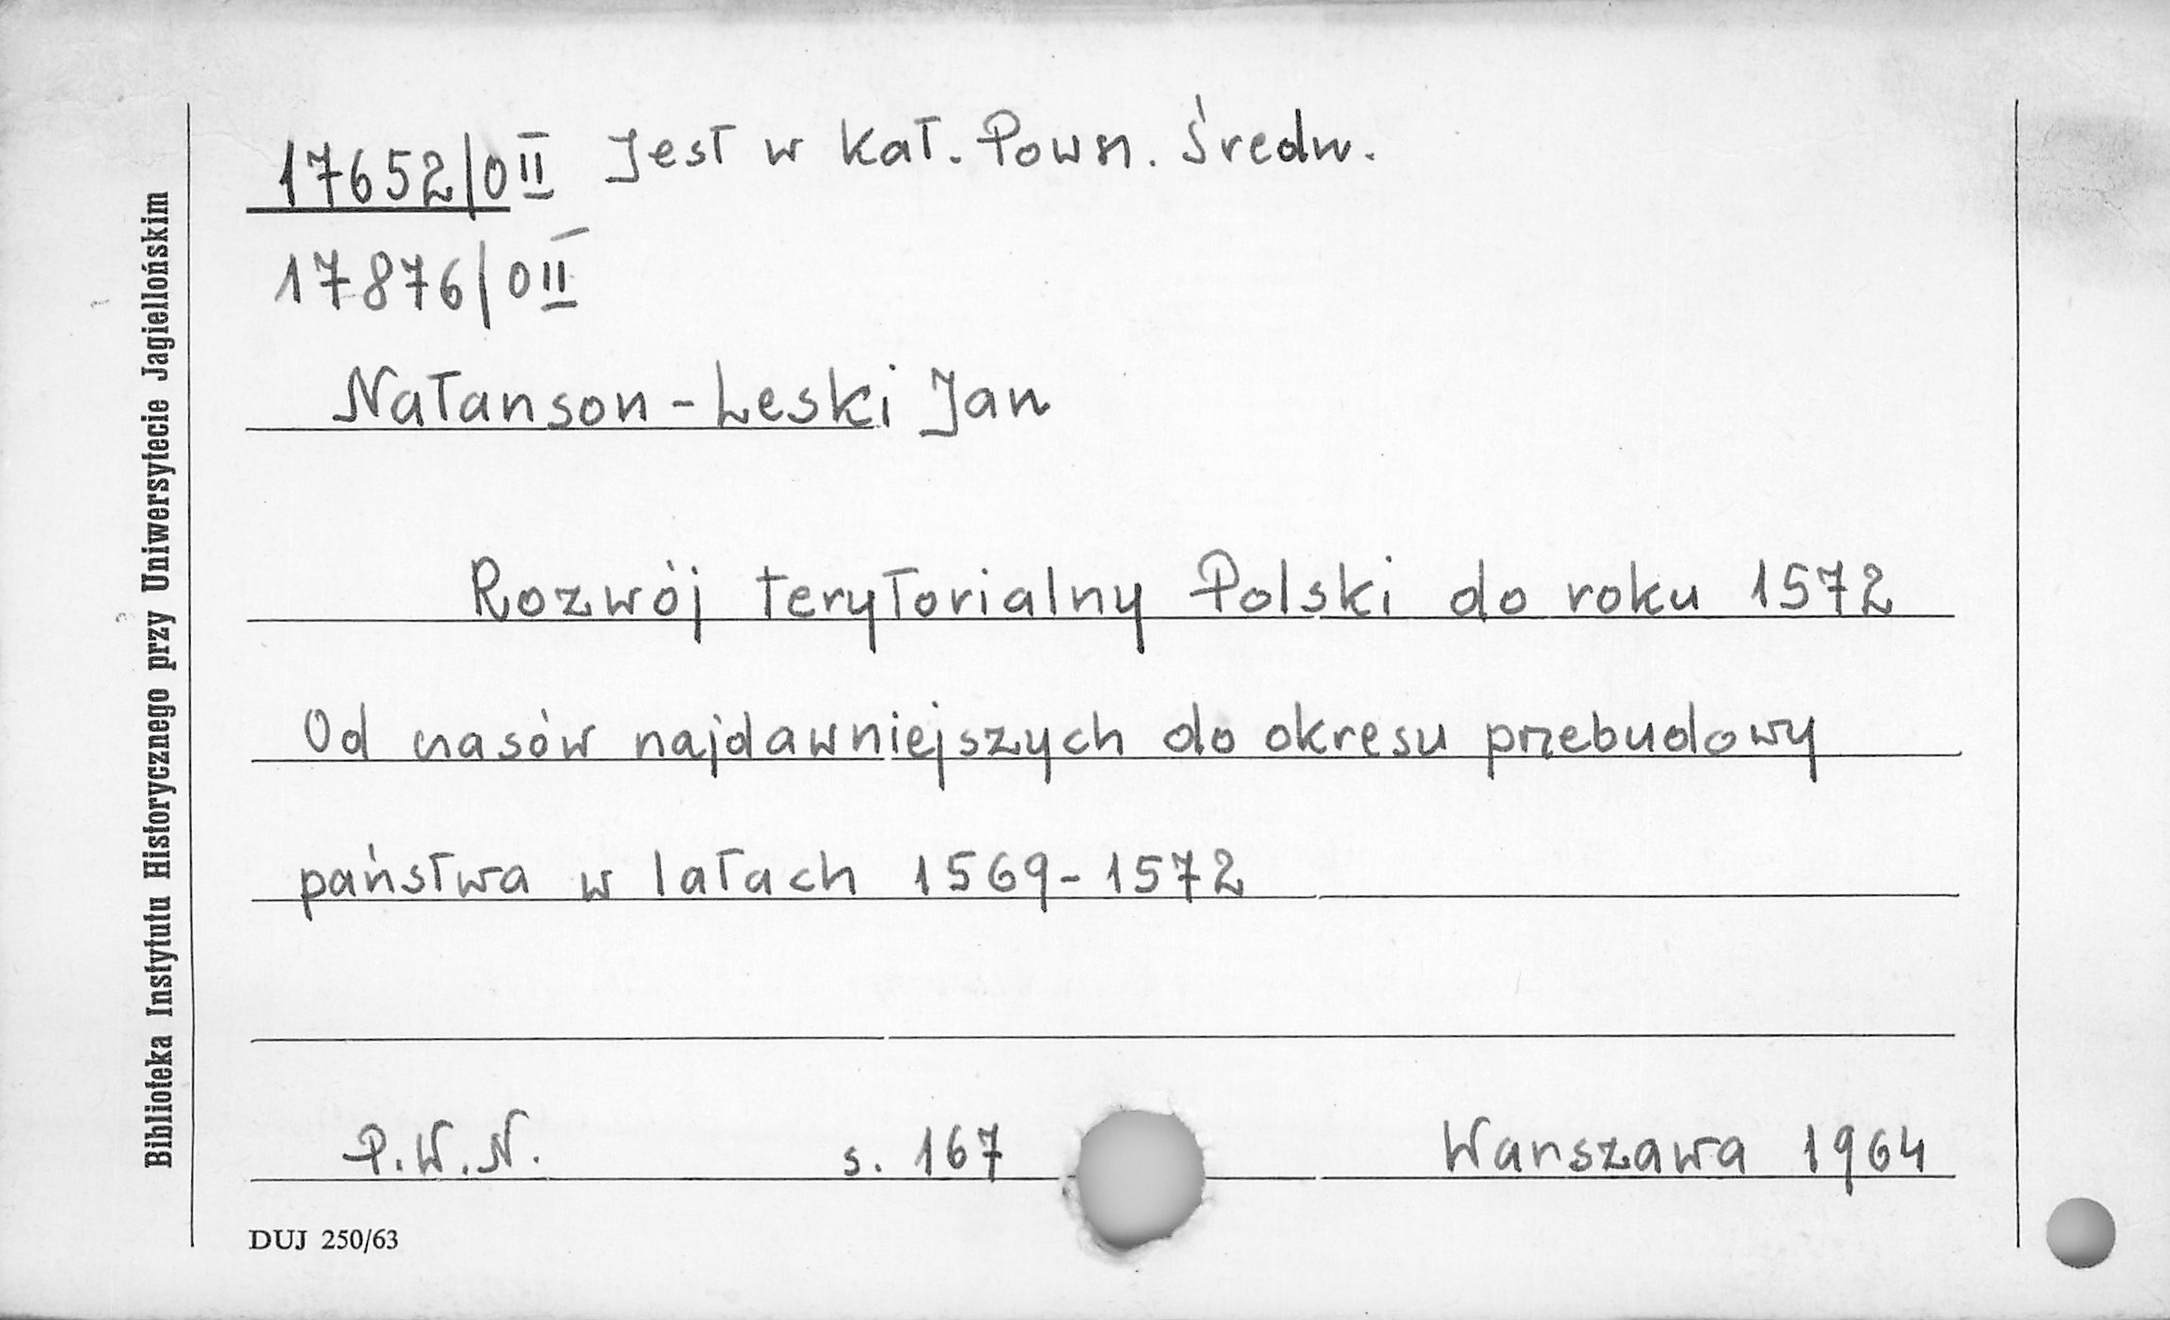 17652/0II Jest w kat. Powsz. Średn.
17876/0II
Natanson-Leski Jan
Rozwój terytorialny Polski do roku 1572
Od czasów najdawniejszych do okresu przebudowy
państwa w latach 1569-1572
P.W.N. s. 167 Warszawa 1964
DUJ 250/63
Biblioteka Instytutu Historycznego przy Uniwersytecie Jagiellońskim